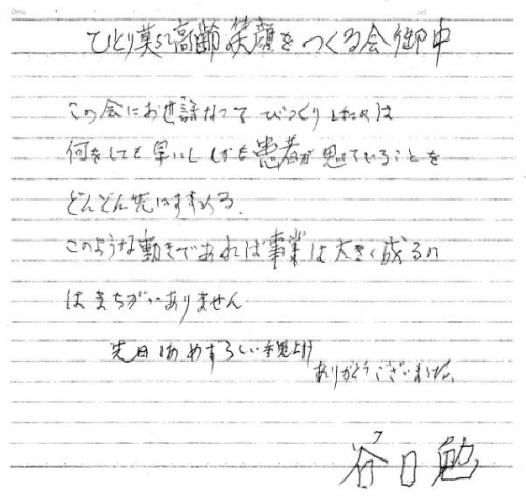 ひとり暮し高齢 笑顔をつくる会御中
この会にお世話なって びっくりしたのは
何をしても早いし しかも患者が思っていることを
どんどん先にすすめる。
このような動きであれば事業は大きく成るの
はまちがいありません
先日は めずらしい
ありがとうございました。
谷口 勉